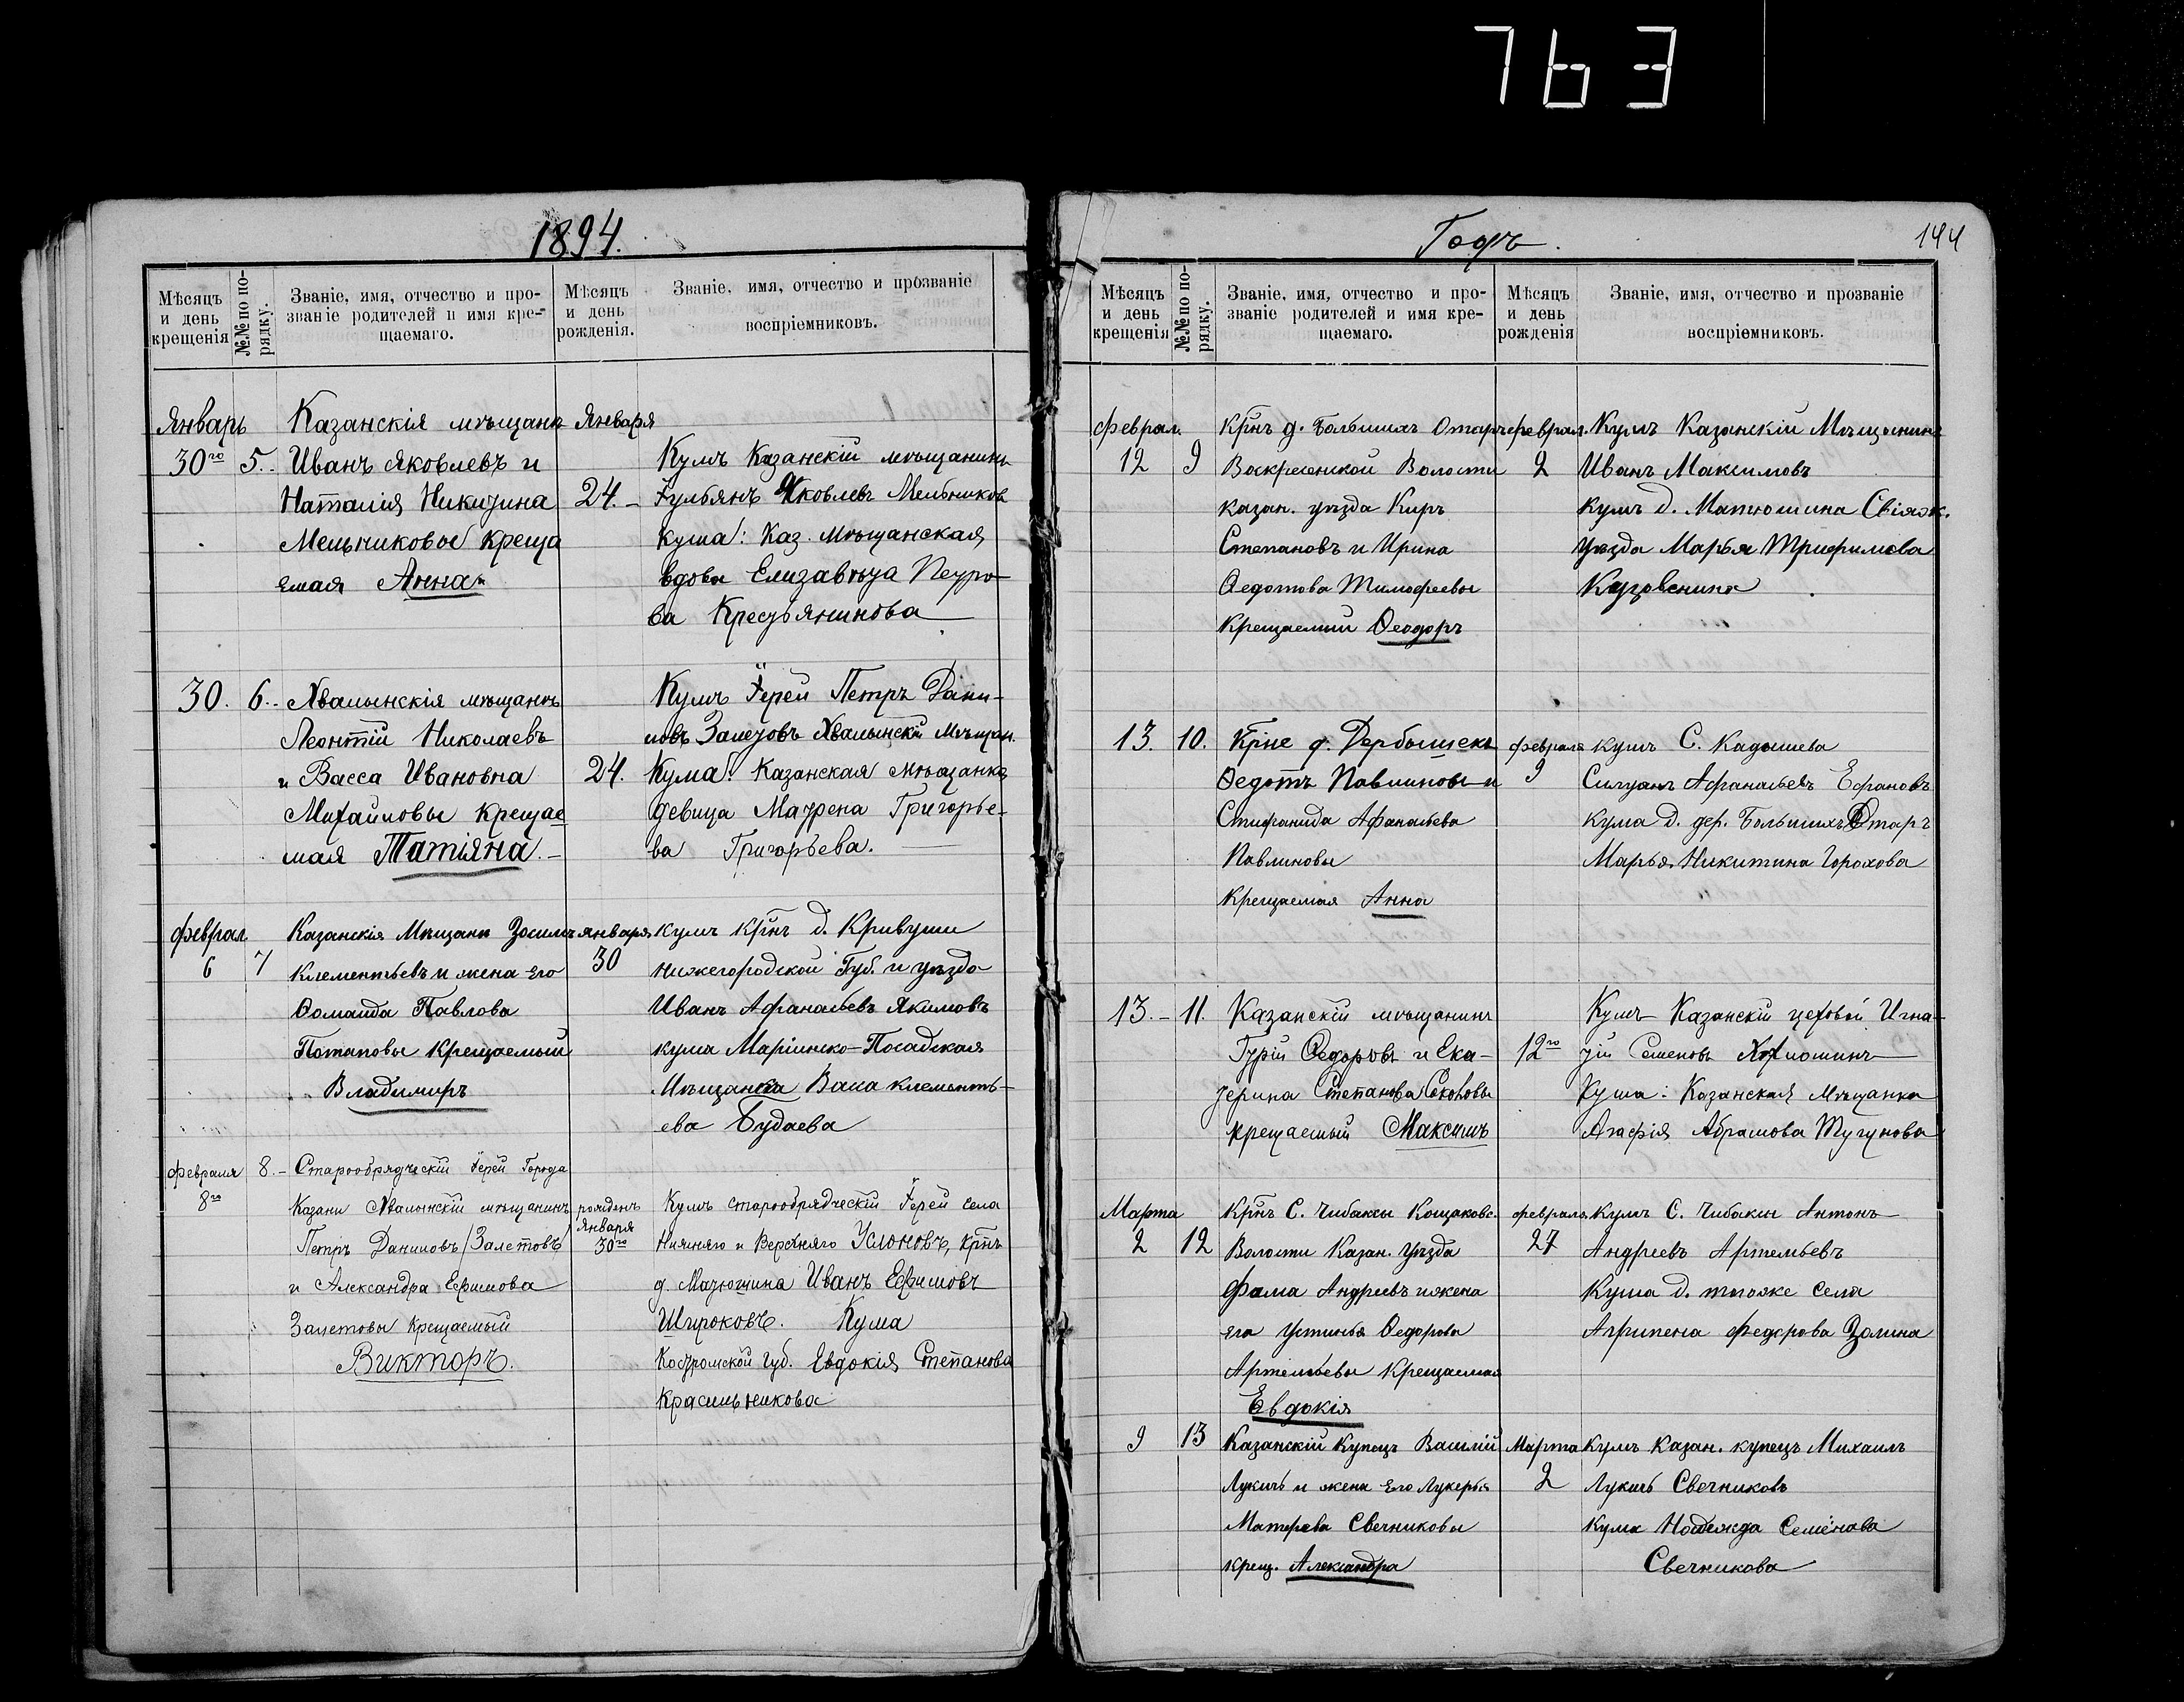 763
1894.
Мѣсяцъ и день крещенія
№№ по порядку.
Званіе, имя, отчество и прозваніе родителей и имя крещаемаго.
Мѣсяцъ и день рожденія.
Званіе, имя, отчество и прозваніе воспріемниковъ.
Январь
30го 5.
Казанскія мѣщане
Иванъ Яковлевъ и
Наталія Никитина
Мельниковы креща
емая Анна
Января
24.
Кумъ Казанскій мѣщанинъ
Іульянъ Яковлевъ Мельников
кума: Каз. мѣщанская
вдова Елизавѣта Петро
ва Крестьянинова
30. 6.
Хвалынскія мѣщане
Леонтій Николаевъ
и Васса Ивановна
Михайловы крещае
мая Татіяна.
24.
Кумъ Іерей Петръ Дани-
ловъ Залетовъ Хвалынскій Мѣщан.
Кума: Казанская мѣщанка
девица Матрена Григорье-
ва Григорьева.
Феврал
6 7
Казанскія Мѣщане Зосимъ
Клементьевъ и жена его
Павлова
Потаповы крещаемый
Владимиръ
января
30
кумъ крнъ д. Кривуши
Нижегородской Губ. и уѣзда
Иванъ Афанасьевъ Якимовъ
кума Маріинско-Посадская
Мѣщанка Васса Клементь-
ева Будаева
Февраля 8.
8го
Старообрядческій Іерей Города
Казани Хвалынскій мѣщанинъ
Петръ Даниловъ (Залетовъ)
и Александра Ефимова
Залетовы крещаемый
Викторъ.
рожденъ
Января
30го
Кумъ старообрядческій Іерей села
Нижняго и Верхняго Услоновъ, крнъ
д. Матюшина Иванъ Ефимовъ
Широковъ. Кума
Костромской губ. Евдокія Степанова
Красильникова
Годъ.
144
Мѣсяцъ и день крещенія
№№ по порядку.
Званіе, имя, отчество и прозваніе родителей и имя крещаемаго.
Мѣсяцъ и день рожденія
Званіе, имя, отчество и прозваніе воспріемниковъ.
Феврал.
12 9
Крнъ д. Большихъ Отаръ
Воскресенской Волости
казан. уѣзда Киръ
Степановъ и Ирина
Ѳедотова Тимофеевы
Крещаемый Ѳеодоръ
Феврал.
2
Кумъ Казанскій Мѣщанинъ
Иванъ Максимовъ
кума д. Матюшина Свіяж.
Уѣзда Марья Трифилова
13. 10.
Крне д. Дербышекъ
Ѳедотъ Павлиновъ и
Стифанида Афанасьева
Павлиновы
крещаемая Анна
Февраля
9
кумъ С. Кадышева
Силуанъ Афанасьевъ Ефановъ
кума д. дер. Большихъ Отаръ
Марья Никитина Горохова
13. 11.
Казанскій мѣщанинъ
Гурій Ѳедоровъ и Ека-
терина Степанова Соколовы
крещаемый Максимъ
12го
Кумъ Казанскій цеховой Игна-
тій Семеновъ
Кума: Казанская Мѣщанка
Агафія Абрамова Тугунова
Марта
2 12
Крнъ С. Чибаксы Кощаковс.
Волости Казан. Уѣзда
Фама Андреевъ и жена
его Устинья Ѳедорова
Артемьевы Крещаемая
Евдокія
февраля
27
Кумъ С. Чибаксы Антонъ
Андреевъ Артемьевъ
Кума д. тогоже села
Агрипена Федорова Золина
9 13
Казанскій Купецъ Василій
Лукичъ и жена его Лукерья
Матрева Свечниковы
крещ. Александра
Марта
2
Кумъ казан. купецъ Михаилъ
Лукичъ Свечниковъ
Кума Надежда Семёнова
Свечникова